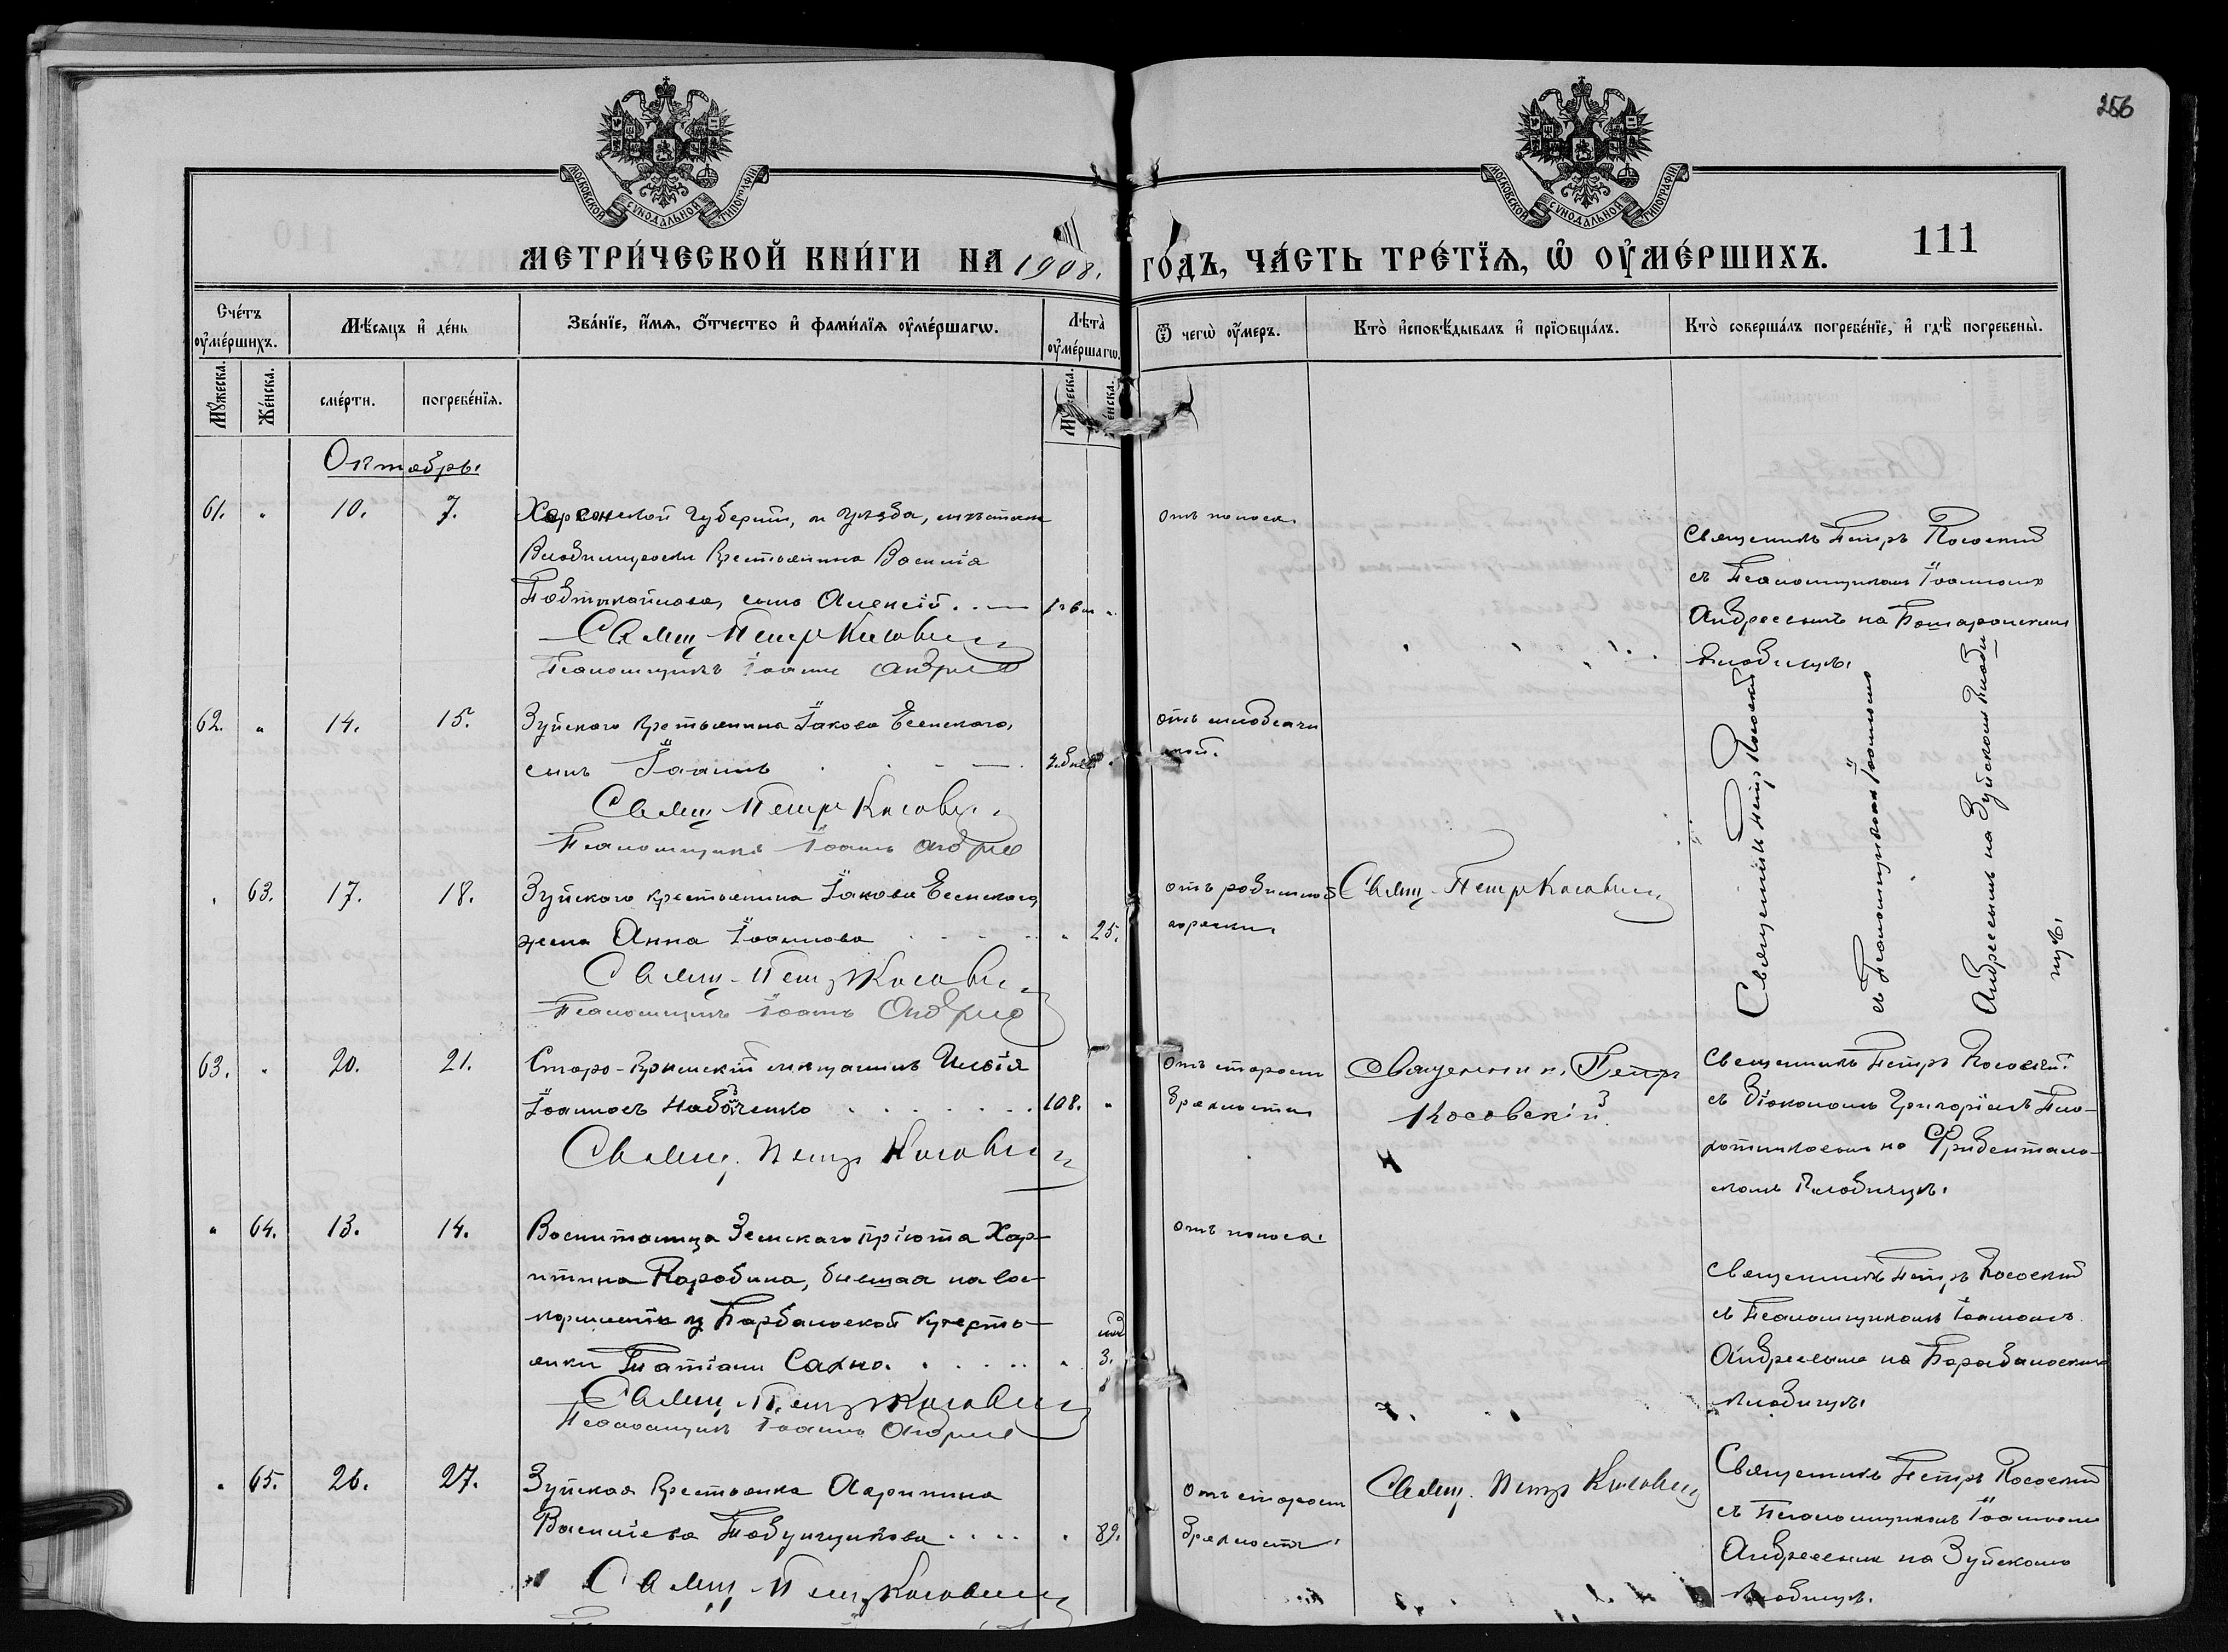 256
МОСКОВСКОЙ СѴНОДАЛЬНОЙ ТИПОГРАФІИ
МОСКОВСКОЙ СѴНОДАЛЬНОЙ ТИПОГРАФІИ
МЕТРИ́ЧЕСКОЙ КНИ́ГИ НА 1908. ГО́ДЪ, ЧА́СТЬ ТРЕ́ТЇѦ, Ѡ҆ ОУ҆МЕ́РШИХЪ. 111
Сче́тъ оу҆ме́ршихъ.
Мѣ́сяцъ и҆ де́нь
Зва́нїе, и҆́мѧ, ѻ҆́тчество и҆ фами́лїѧ оу҆ме́ршагѡ.
Лѣ́та оу҆ме́ршагѡ.
Ѿ чегѡ̀ оу҆́меръ.
Кто̀ и҆сповѣ́дывалъ и҆ прїѡбща́лъ.
Кто̀ соверша́лъ погребе́нїе, и҆ гдѣ̀ погребены̀.
Мꙋ́жеска.
Же́нска.
сме́рти.
погребе́нїѧ.
Октябрь.
61. " 10. 7. Херсонской губерніи, и уѣзда, мѣстечка
Владимировки крестьянина Василія
сынъ Алексій
Свящ. Петръ Косовскій
Псаломщикъ Іоаннъ Андріев
отъ поноса.
Священникъ Петръ Косовскій
съ Псаломщикомъ Іоанномъ
Андреевымъ на
кладбищѣ.
62. " 14. 15. Зуйскаго крестьянина Іакова Есенскаго,
сынъ Іоаннъ
Свящ. Петръ Косовскій
Псаломщикъ Іоаннъ Андріев
отъ младенче
ской.
Священникъ Петръ Косовскій
съ Псаломщикомъ Іоанномъ
Андреевымъ на Зуйскомъ кладби
щѣ.
" 63. 17. 18. Зуйскаго крестьянина Іакова Есенскаго,
жена Анна Іоаннова " 25.
Свящ. Петръ Косовскій
Псаломщикъ Іоаннъ Андріев
отъ родильной
горячки.
Свящ. Петръ Косовскій
63. " 20. 21. Старо-Крымскій мѣщанинъ Илья
Іоанновъ 108. "
Свящ. Петръ Косовскій
отъ старости
дряхлости
Священникъ Петръ
Косовскій
Священникъ Петръ Косовскій
съ діакономъ Григоріемъ Пло-
тниковымъ на Фриденталь-
скомъ кладбищѣ.
" 64. 13. 14. Воспитаница Земскаго пріюта Хар-
итина Карабина, бывшая на вос-
кормленіи у крестья-
янки Татіаны Сахно. " 3.
Свящ. Петръ Косовскій
Псаломщикъ Іоаннъ Андріев
отъ поноса.
Священникъ Петръ Косовскій
съ Псаломщикомъ Іоанномъ
Андреевымъ на
кладбищѣ.
" 65. 26. 27. Зуйская крестьянка Агрипина
Васильева Табунщикова " 89.
Свящ. Петръ Косовскій
отъ старости
дряхлости.
Свящ. Петръ Косовскій
Священникъ Петръ Косовскій
съ Псаломщикомъ Іоанномъ
Андреевымъ на Зуйскомъ
кладбищѣ.